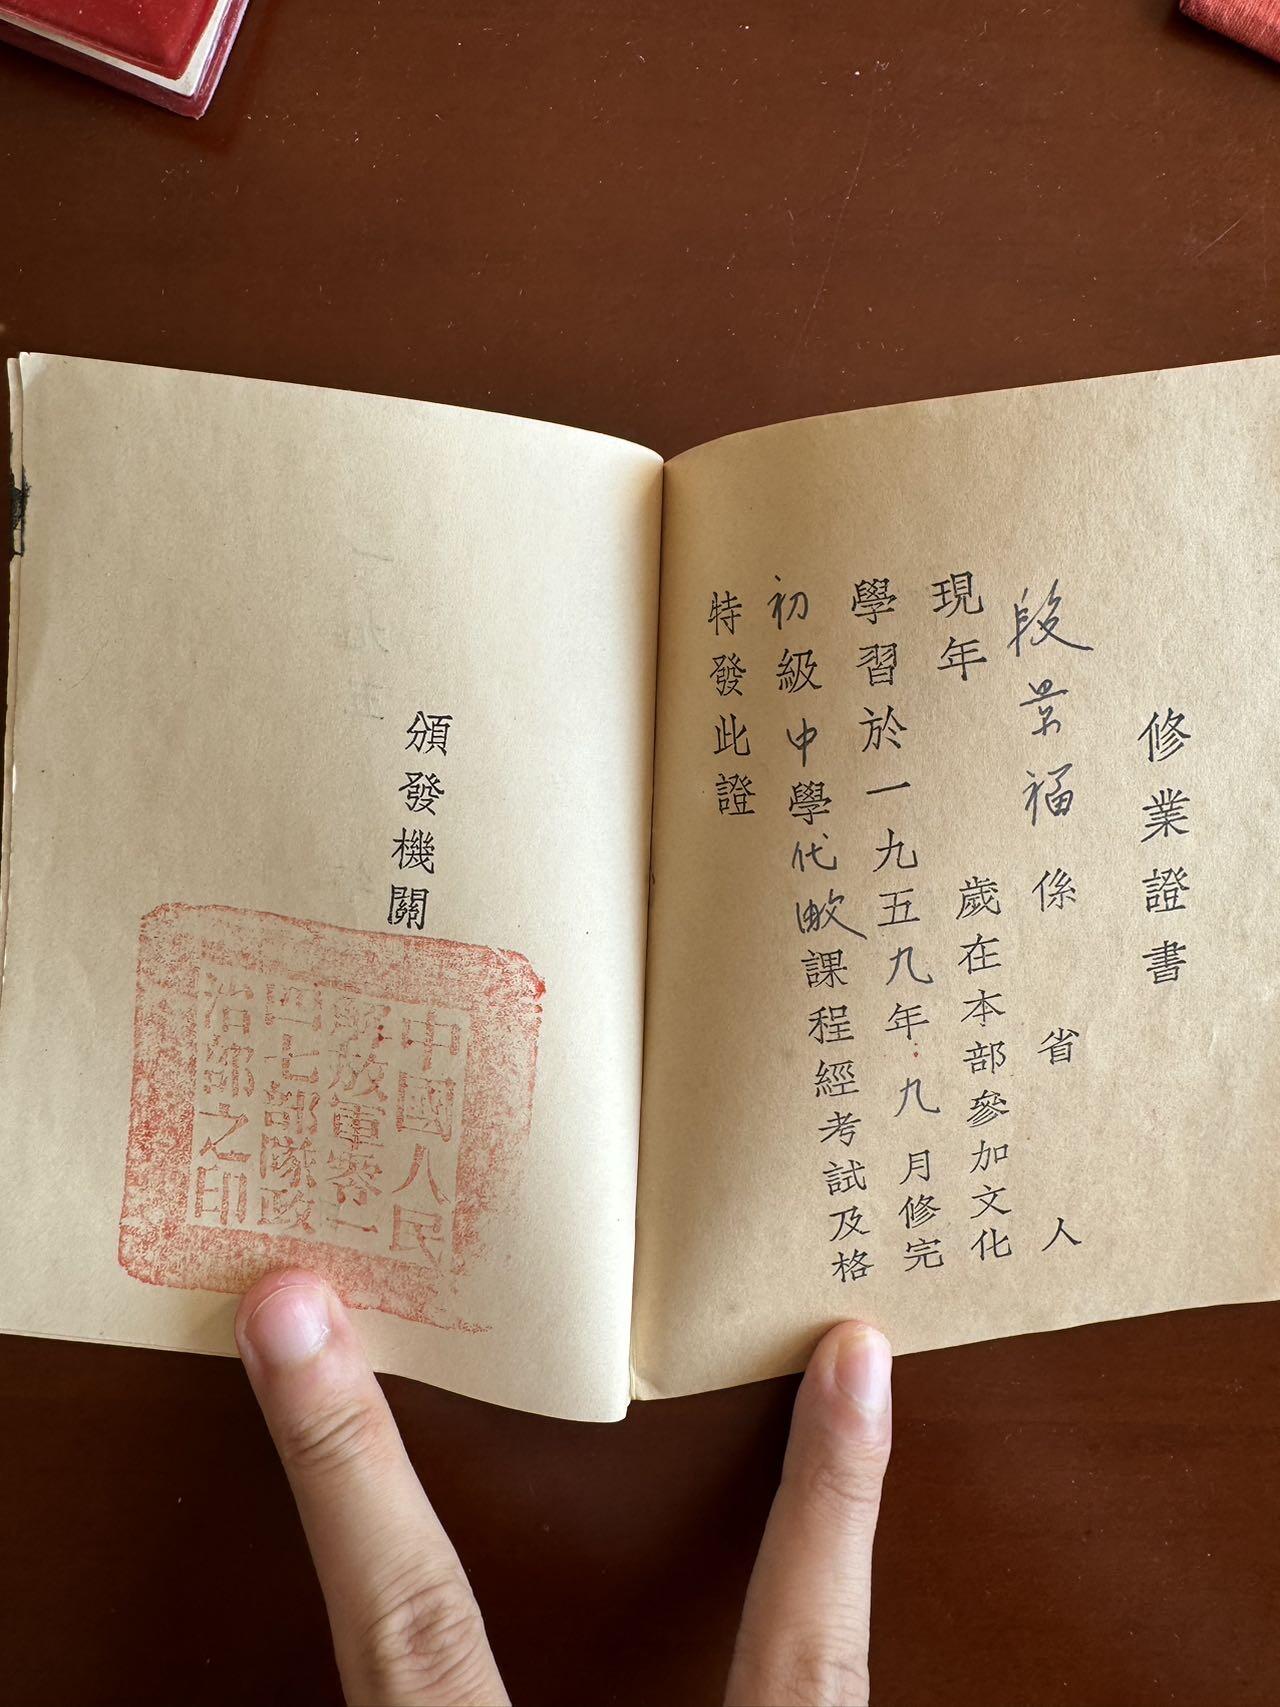 修業證書
段景福係 省 人
現年 歲在本部參加文化
學習於一九五九年九月修完
初級中學代數課程經考試及格
特發此證
頒發機關
中國人民
解放軍零一
四七部隊政
治部之印